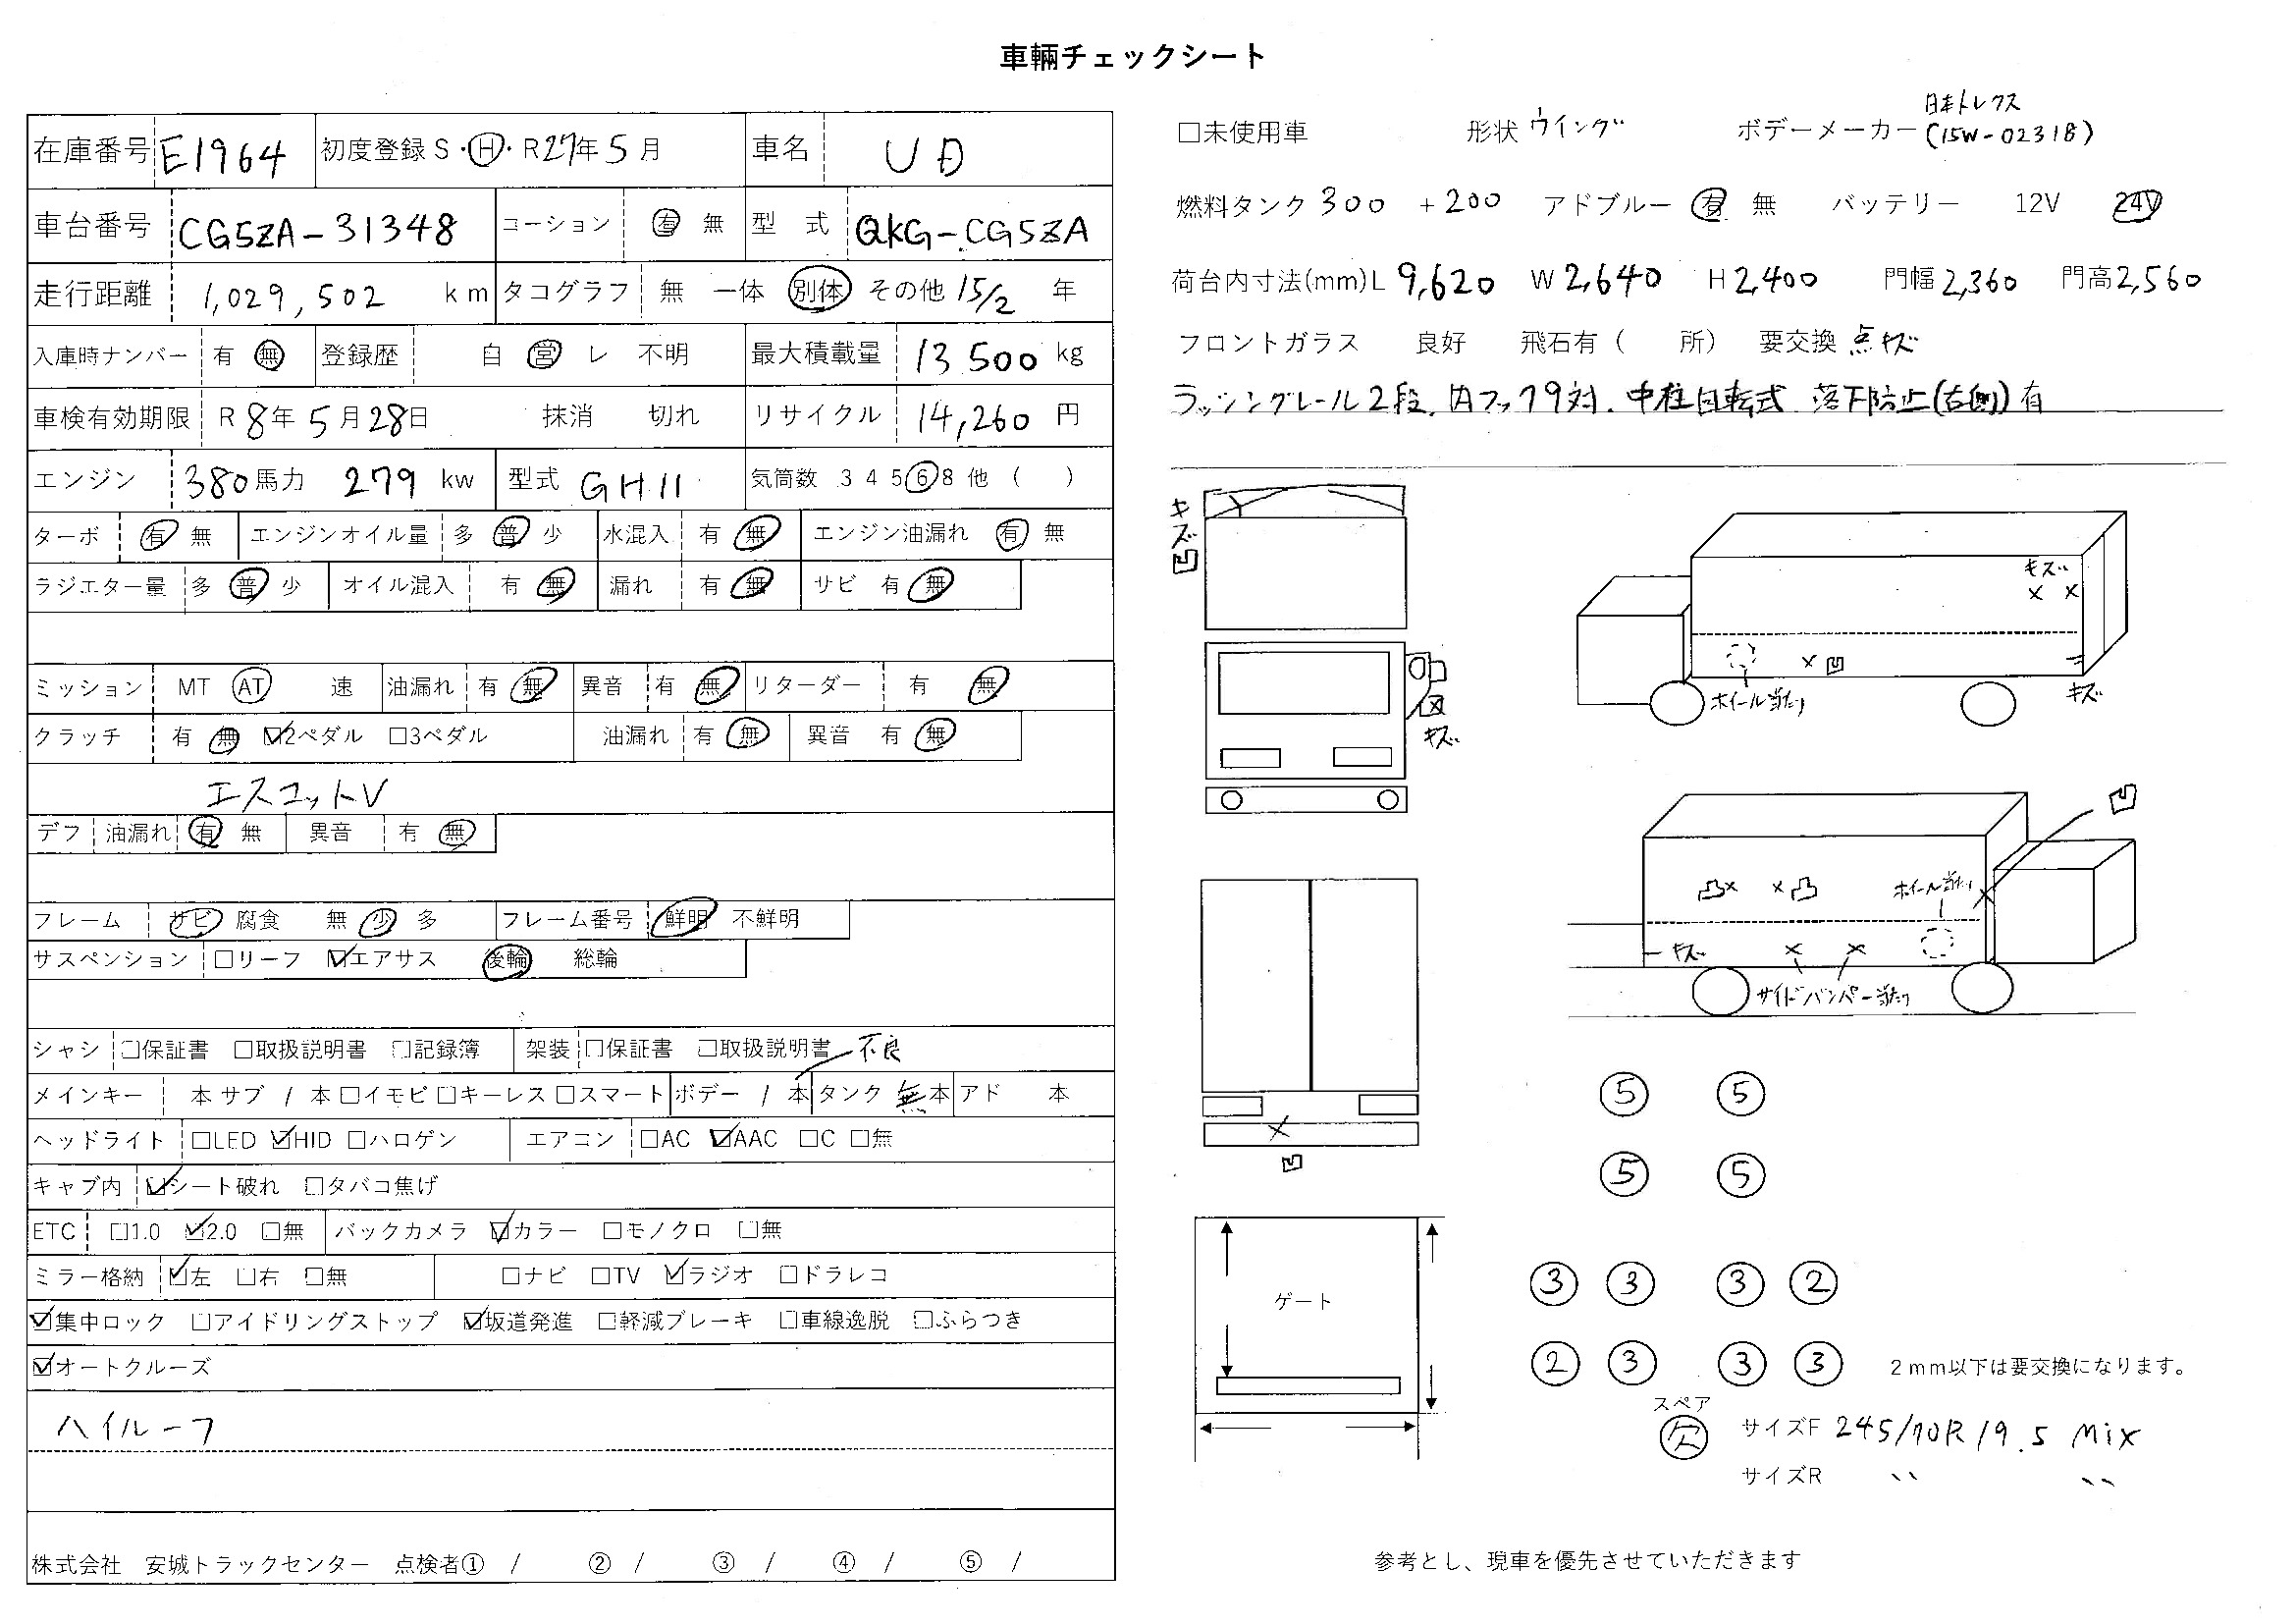 車輛チェックシート
在庫番号 E1964 初度登録 S・Ⓗ・R 27年 5月 車名 UD
車台番号 CG5ZA-31348 コーション 有 無 型 式 QKG-CG5ZA
走行距離 1,029,502 km タコグラフ 無 一体 別体 その他 15/2 年
入庫時ナンバー 有 無 登録歴 自 営 レ 不明 最大積載量 13500 kg
車検有効期限 R 8年 5月 28日 抹消 切れ リサイクル 14,260 円
エンジン 380馬力 279 kw 型式 GH11 気筒数 3 4 5 ⑥ 8 他 ( )
ターボ 有 無 エンジンオイル量 多 普 少 水混入 有 無 エンジン油漏れ 有 無
ラジエター量 多 普 少 オイル混入 有 無 漏れ 有 無 サビ 有 無
ミッション MT AT 速 油漏れ 有 無 異音 有 無 リターダー 有 無
クラッチ 有 無 ☑2ペダル □3ペダル 油漏れ 有 無 異音 有 無
エスコットV
デフ 油漏れ 有 無 異音 有 無
フレーム サビ 腐食 無 少 多 フレーム番号 鮮明 不鮮明
サスペンション □リーフ ☑エアサス 後輪 総輪
シャシ □保証書 □取扱説明書 □記録簿 架装 □保証書 □取扱説明書 不良
メインキー 本 サブ / 本 □イモビ □キーレス □スマート ボデー / 本 タンク 無 本 アド 本
ヘッドライト □LED ☑HID □ハロゲン エアコン □AC ☑AAC □C □無
キャブ内 ☑シート破れ □タバコ焦げ
ETC □1.0 ☑2.0 □無 バックカメラ ☑カラー □モノクロ □無
ミラー格納 ☑左 □右 □無 □ナビ □TV ☑ラジオ □ドラレコ
☑集中ロック □アイドリングストップ ☑坂道発進 □軽減ブレーキ □車線逸脱 □ふらつき
☑オートクルーズ
ハイルーフ
株式会社 安城トラックセンター 点検者① / ② / ③ / ④ / ⑤ /
日本トレクス
□未使用車 形状 ウイング ボデーメーカー (15W-02318)
燃料タンク 300 +200 アドブルー 有 無 バッテリー 12V 24V
荷台内寸法(mm) L 9,620 W 2,640 H 2,400 門幅 2,360 門高 2,560
フロントガラス 良好 飛石有 ( 所) 要交換 点キズ
ラッシングレール2段. 内フック9対. 中柱回転式 落下防止(右側)有
キズ凹
キズ
× ×
× 凹
ホイール当たり
キズ
キズ
凹
凸× ×凸 ホイール当たり
キズ × ×
サイドバンパー当たり
×
凹
⑤ ⑤
⑤ ⑤
③ ③ ③ ②
② ③ ③ ③ 2mm以下は要交換になります。
ゲート
スペア
欠 サイズF 245/70R19.5 Mix
サイズR 〃 〃
参考とし、現車を優先させていただきます